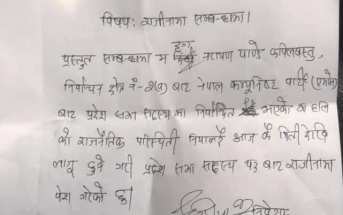 विषयः राजीनामा सम्बन्धमा।
प्रस्तुत सम्बन्धमा म नारायण पाण्डे कपिलवस्तु,
निर्वाचन क्षेत्र नं-२(ख) बाट नेपाल कम्युनिष्ट पार्टी (एमाले)
बाट प्रदेश सभा सदस्य मा निर्वाचित भएको छु हाल
को राजनैतिक परिस्थिती आज कै मिती देखि
लागू हुने गरी प्रदेश सभा सदस्य पद बाट राजीनामा
पेश गरेको छु।